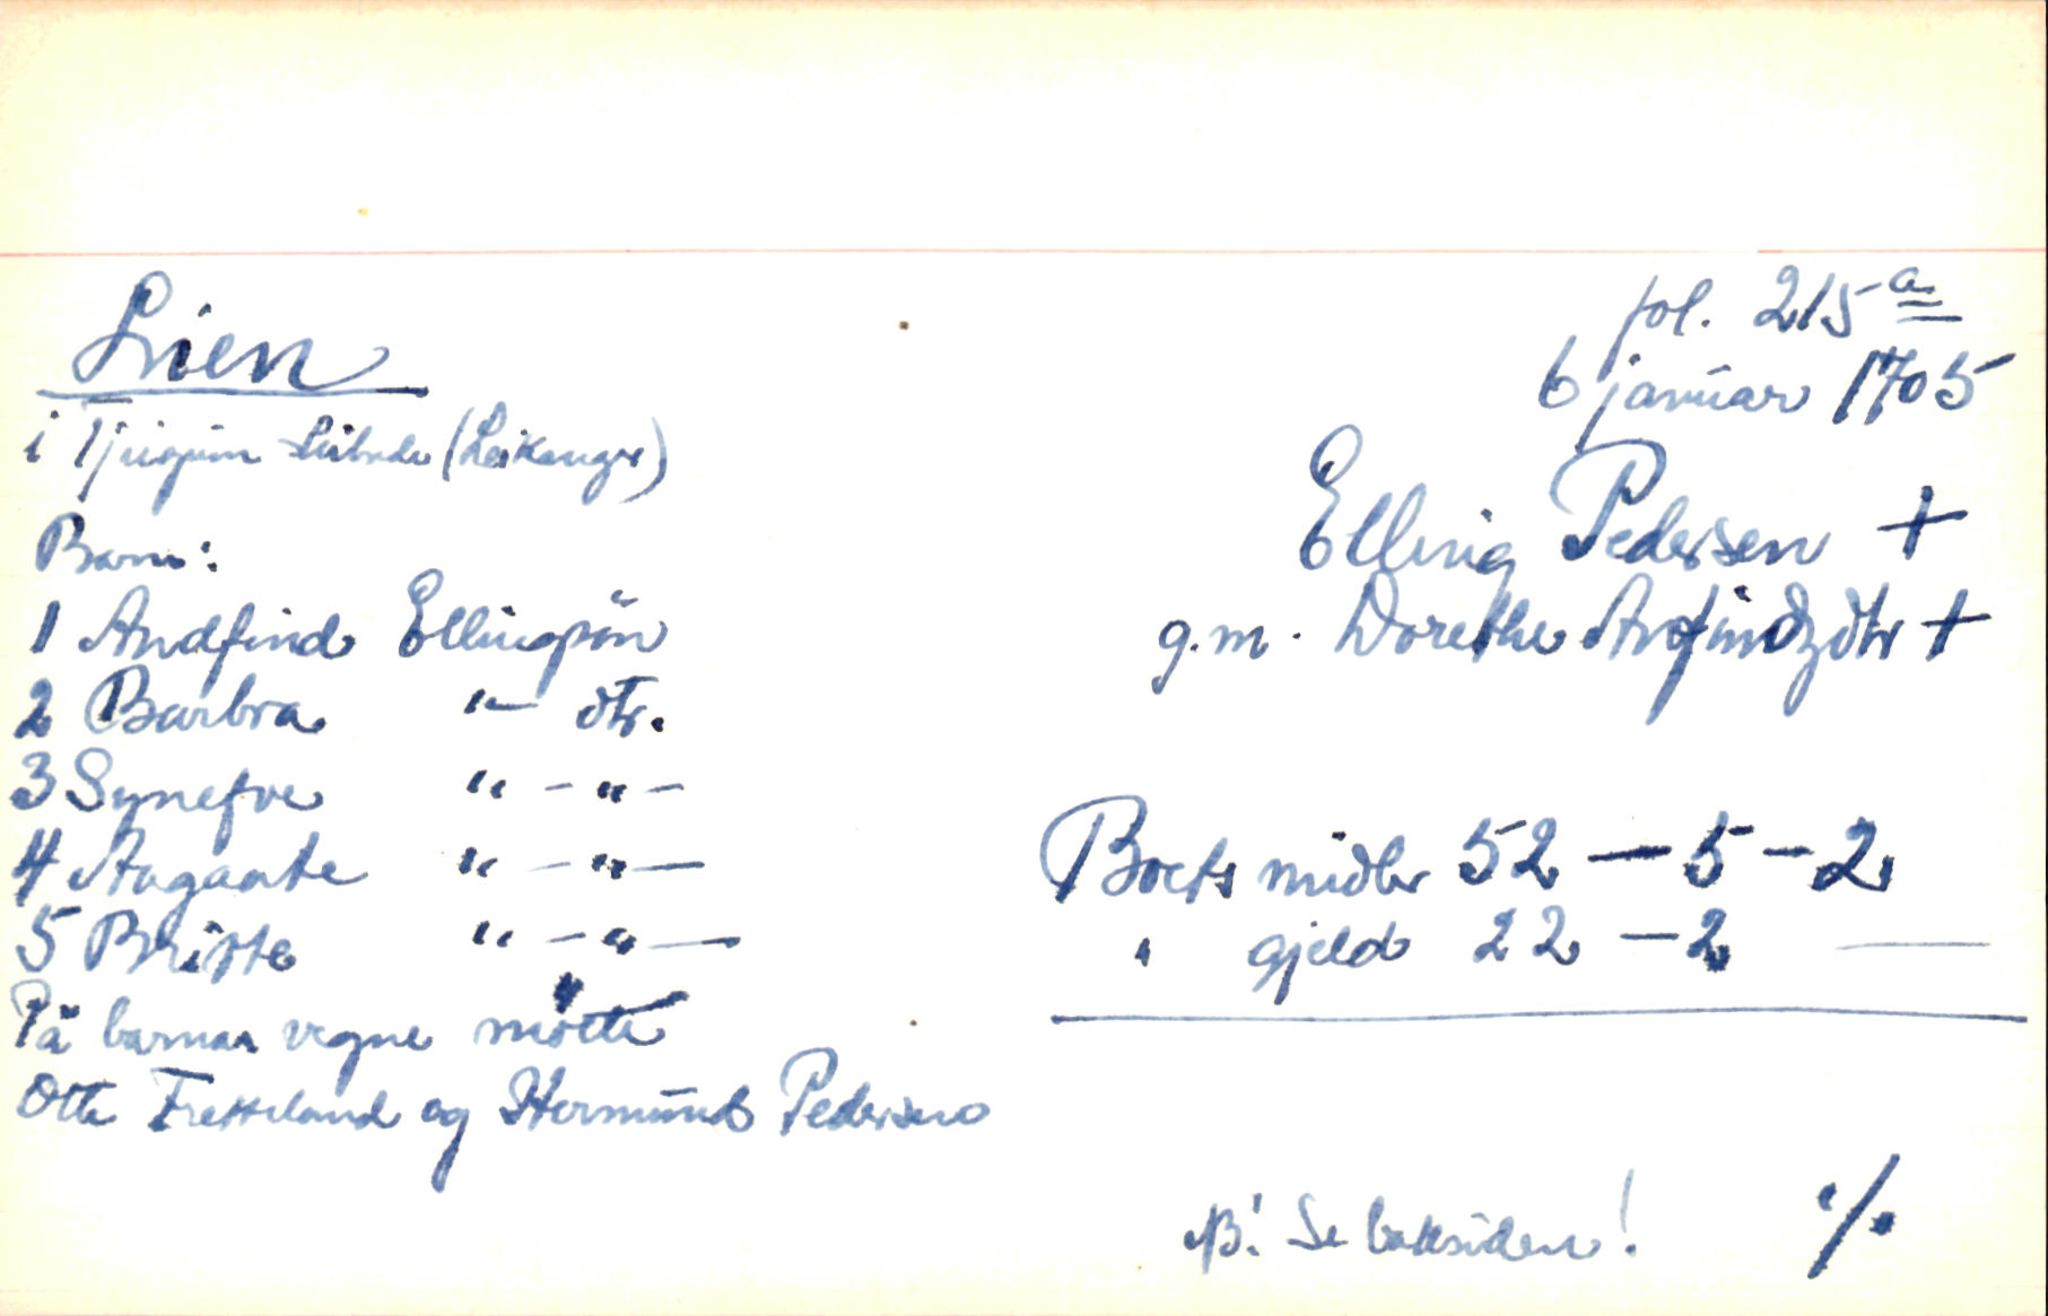 Lien
fol. 215a
6 januar 1705
i Tjugum skibrede (Leikanger)
Elling Pedersen +
g.m. Dorethe Arfindzdtr +
Barn:
1 Andfind Ellingsön
2 Barbra " dtr.
3 Synefve " - " -
4 Aagaate " - " -
5 Britte " - " -
På barnas vegne mötte
Otte Fretteland og Hermund Pedersen
Boets midler 52 - 5 - 2
" gjeld 22 - 2 -
NB! Se baksiden! ·/·